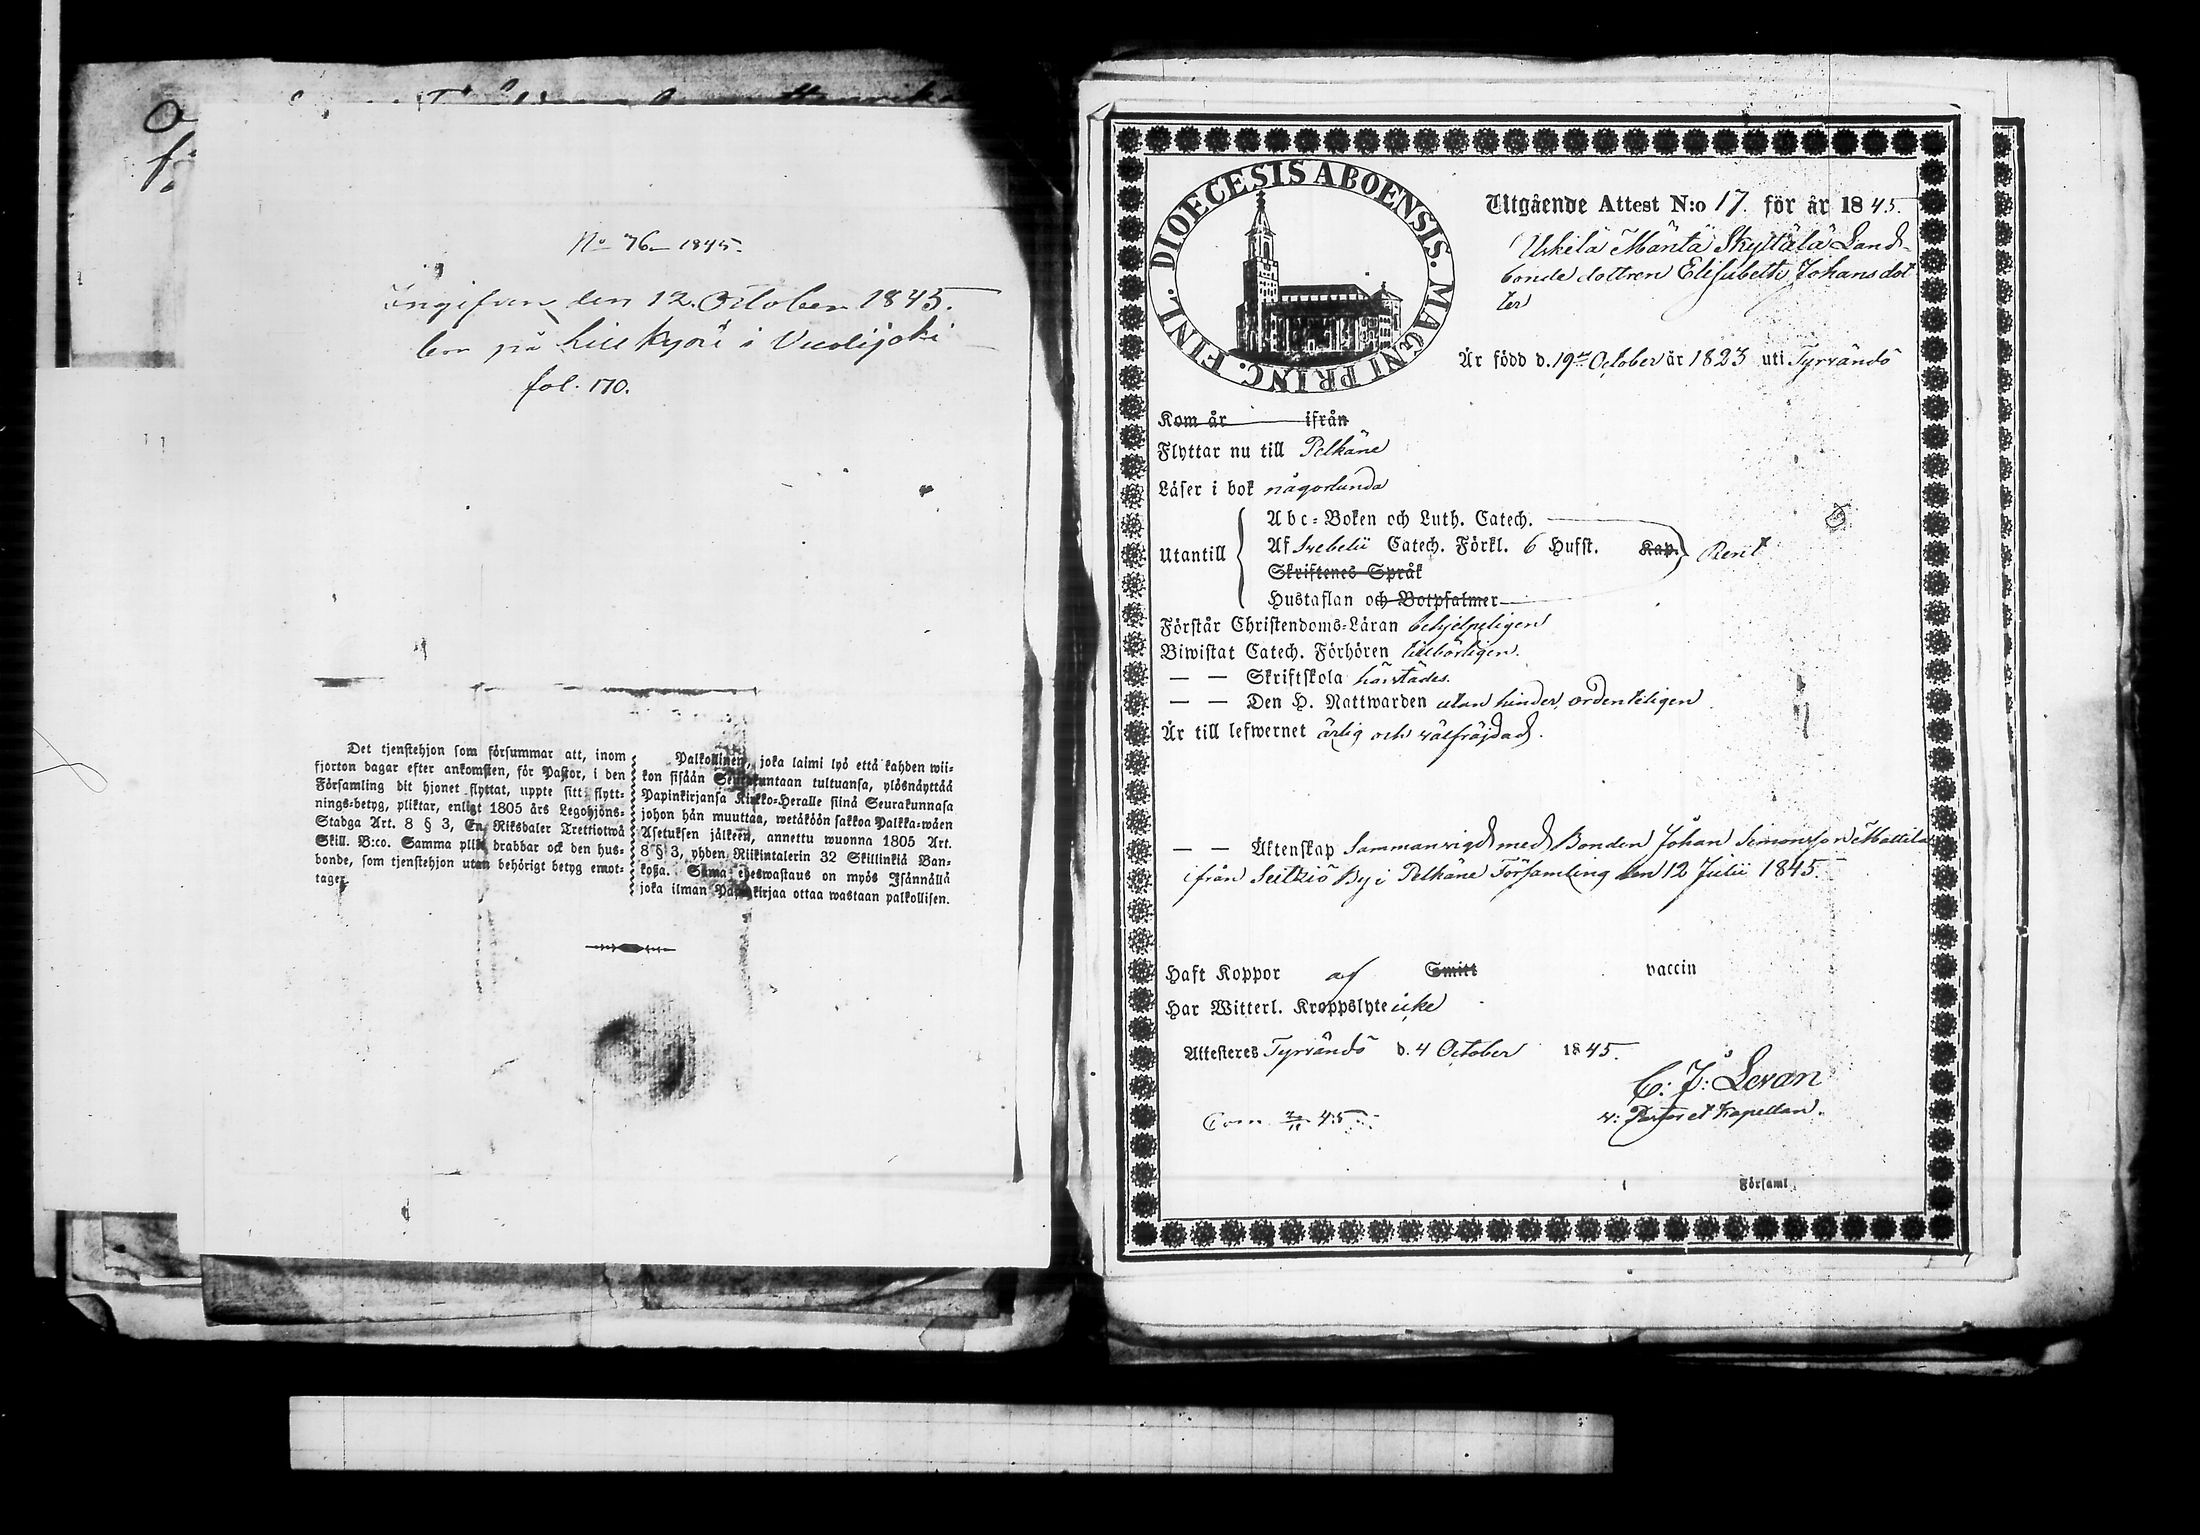 No 76 1845.
Ingifven den 12. October 1845.
bor på Lill Kyrö i Vuolijoki
fol. 170.
Det tjenstehjon som försummar att, inom
fjorton dagar efter ankomsten, för Pastor, i den
Församling dit hjonet flyttat, uppte sitt flytt-
nings-betyg, pliktar, enligt 1805 års Legohjons-
Stadga Art. 8 § 3, En Riksdaler Trettiotwå
Skill. B:co. Samma plikt drabbar ock den hus-
bonde, som tjenstehjon utan behörigt betyg emot-
tager.
Palkollinen, joka laimi lyö että kahden wii-
kon sisään Seurakuntaan tultuansa, ylösnäyttää
Papinkirjansa Kirkko-Heralle siinä Seurakunnasa
johon hän muuttaa, wetäköön sakkoa Palkka-wäen
Asetuksen jälkeen, annettu wuonna 1805 Art.
8 § 3, yhden Riikintalerin 32 Skillinkiä Ban-
kossa. Sama edeswastaus on myös Isännällä
joka ilman Papinkirjaa ottaa wastaan palkollisen.
DIOECESIS ABOENSIS. MAGNI PRINC. FINL.
Utgående Attest N:o 17. för år 1845.
Uskela Mäntä Skyttälä Land-
bonde dottren Elisabeth Johansdot
ter
Är född d. 19de October år 1823 uti Tyrvändö
Kom år ifrån
Flyttar nu till Pelkäne
Läser i bok någorlunda
Abc-Boken och Luth. Catech.
Utantill Af Svebelii Catech. Förkl. 6 Hufst. Kap. Rent
Skriftenes Språk
Hustaflan och Botpsalmer
Förstår Christendoms-Läran behjelpeligen
Biwistat Catech. Förhören tillbörligen.
— — Skriftskola härstädes.
— — Den H. Nattwarden utan hinder, ordenteligen
Är till lefwernet ärlig och välfräjdad.
— — Äktenskap Sammanvigd med Bonden Johan Simonsson Mattila
ifrån Seitziö By i Pelkäne Församling den 12 Julii 1845.
Haft Koppor af Smitt vaccin
Har Witterl. Kroppslyte icke
Attesteres Tyrvändö d. 4 October 1845.
C: J: Levan
v: Pastor et Kapellan.
Com 45
Församl